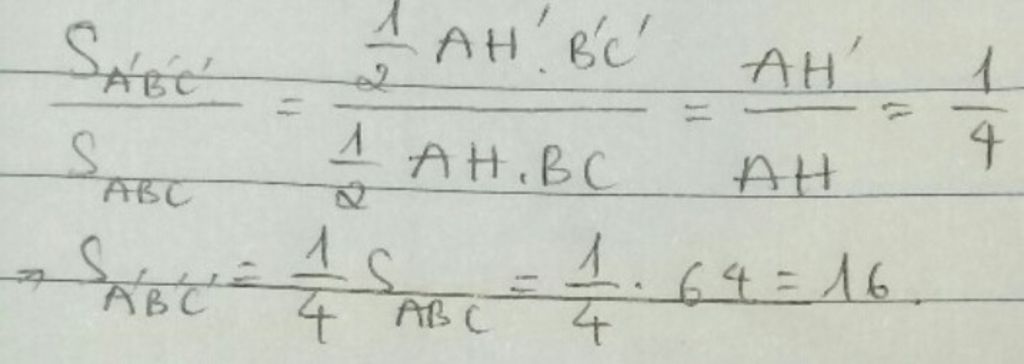 S_{A'B'C'} / S_{ABC} = (1/2 AH'. B'C') / (1/2 AH.BC) = AH' / AH = 1/4
⇒ S_{A'B'C'} = 1/4 S_{ABC} = 1/4 . 64 = 16.